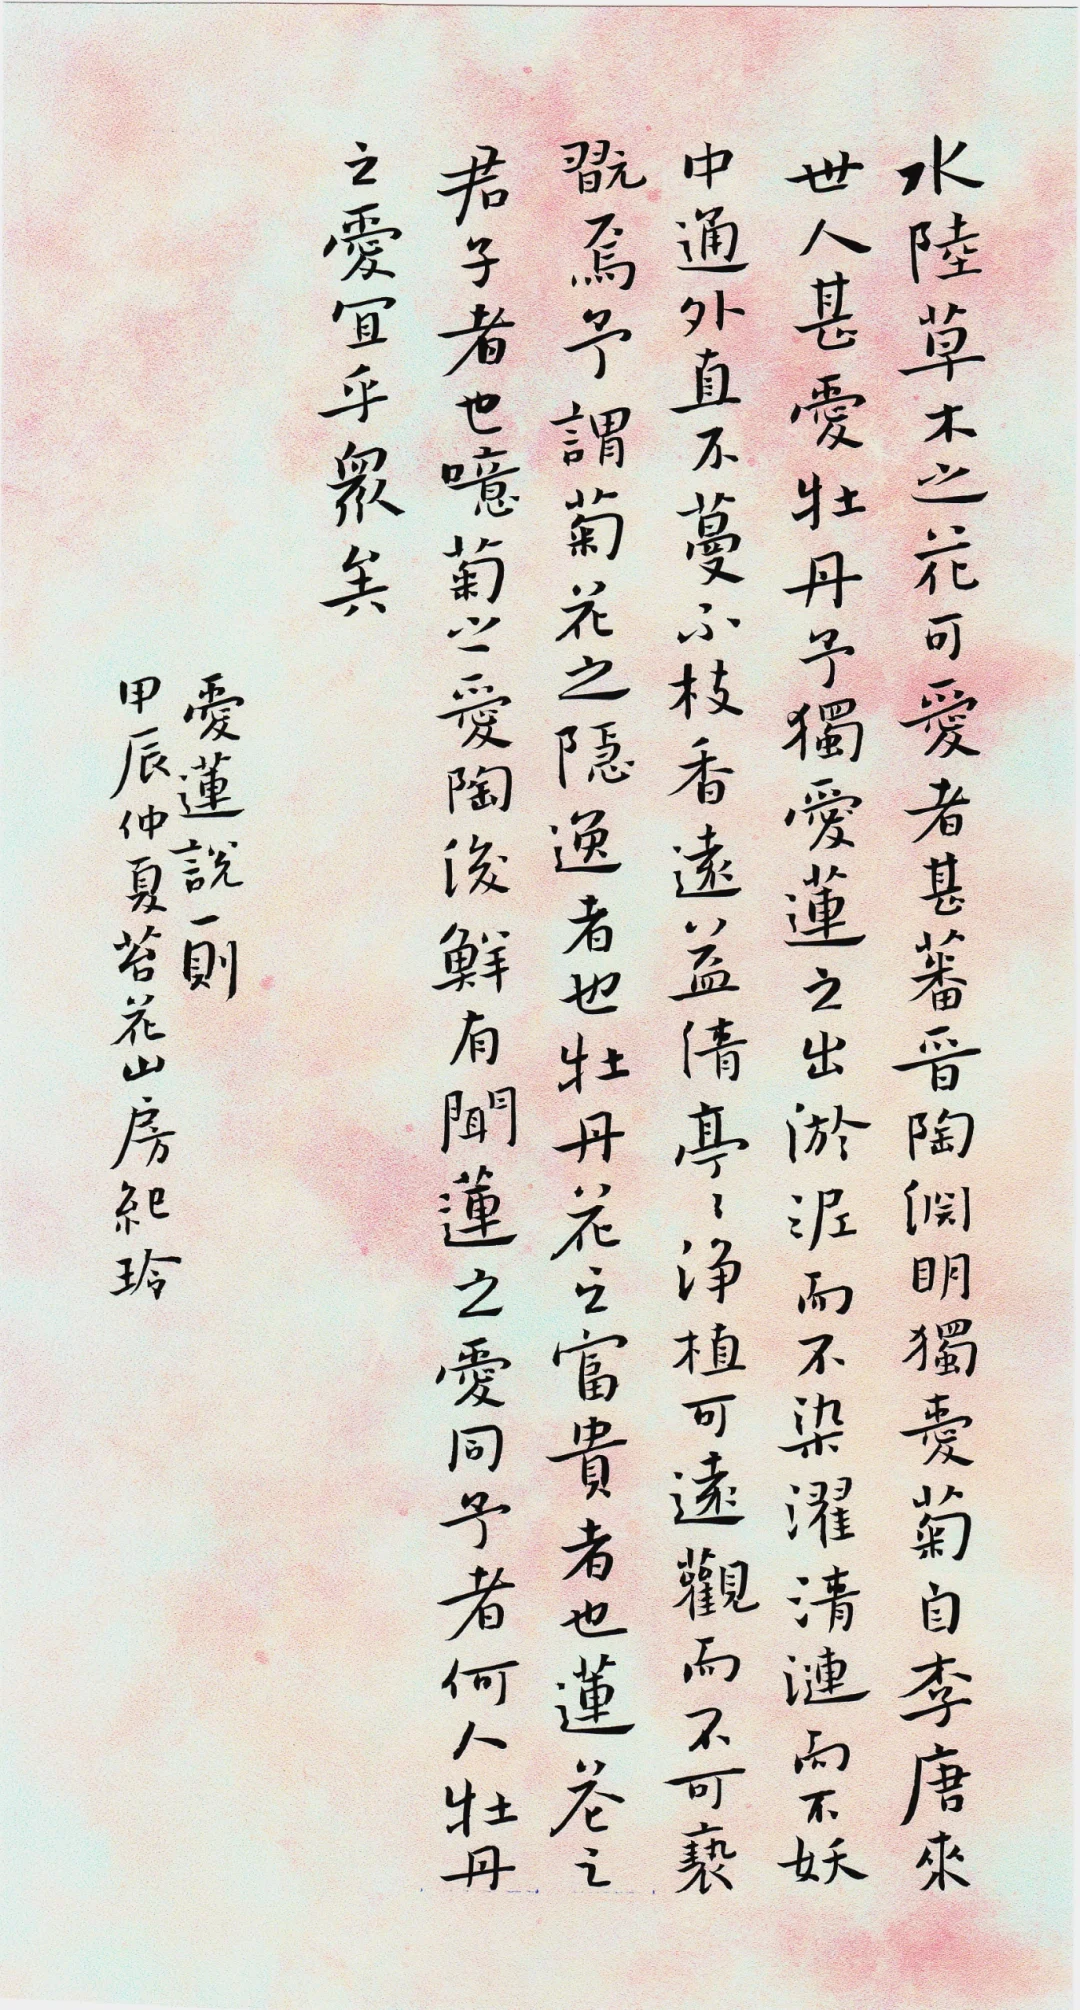 水陸草木之花可愛者甚蕃晉陶淵明獨愛菊自李唐來
世人甚愛牡丹予獨愛蓮之出淤泥而不染濯清漣而不妖
中通外直不蔓不枝香遠益清亭〻淨植可遠觀而不可褻
翫焉予謂菊花之隱逸者也牡丹花之富貴者也蓮花之
君子者也噫菊之愛陶後鮮有聞蓮之愛同予者何人牡丹
之愛宜乎眾矣
愛蓮說一則
甲辰仲夏苔花山房紀玲